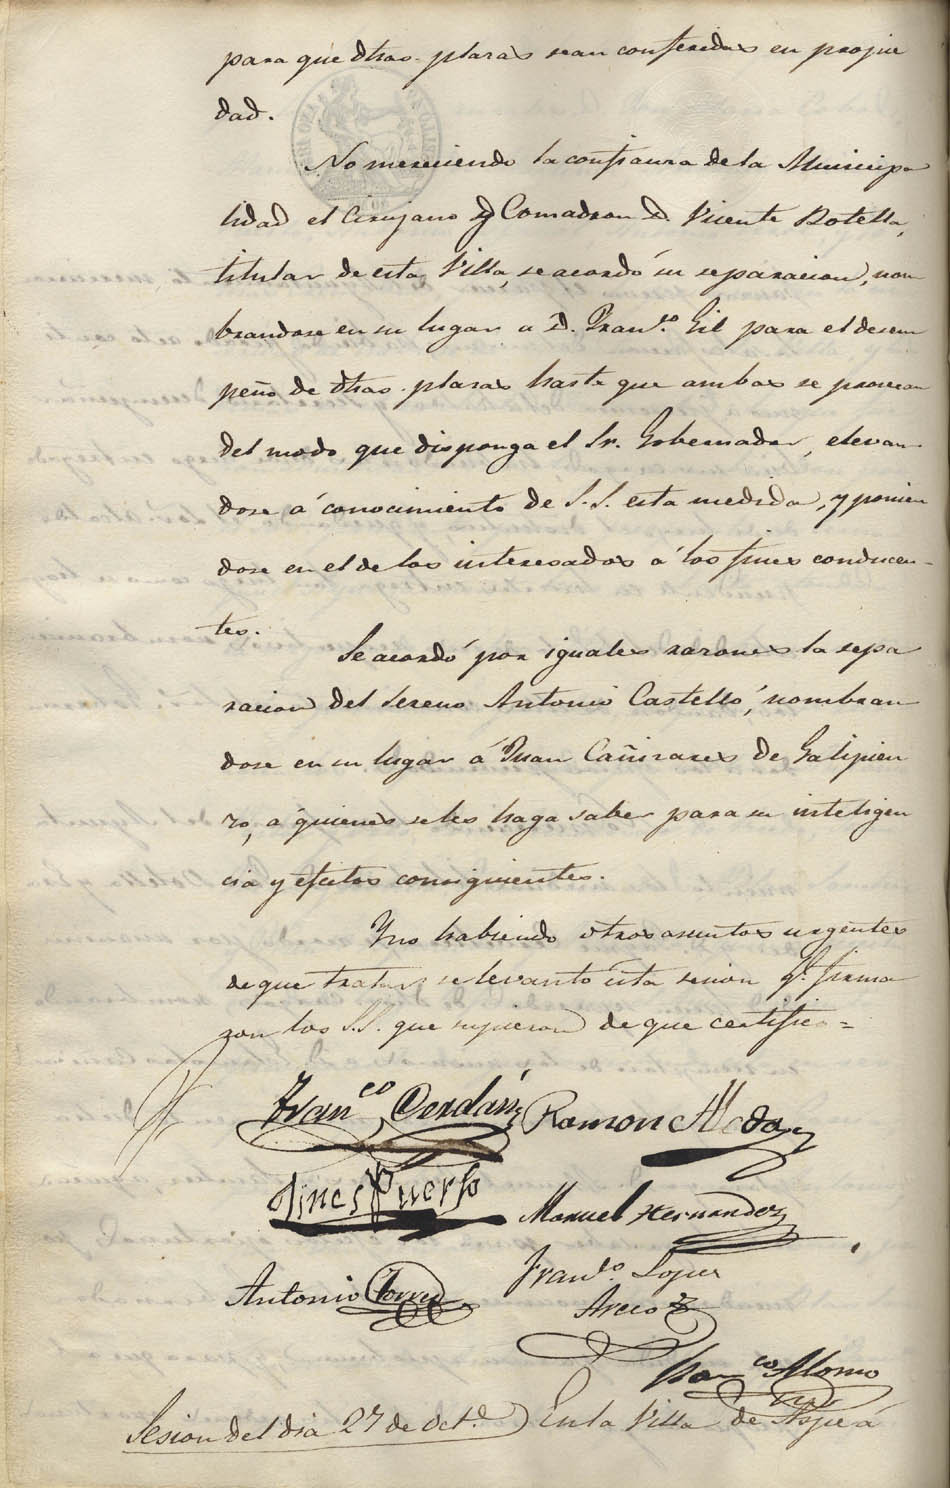 para que dhas plazas sean conferidas en propie
dad.
No mereciendo la confianza de la Municipa
lidad el Cirujano y Comadron D. Vicente Botella,
titular de esta Villa, se acordó su separacion, nom
brandose en su lugar a D. Fran.co Gil para el desem
peño de dhas plazas hasta que ambas se provean
del modo que disponga el Sr. Gobernador, elevan
dose á conocimiento de S.S. esta medida, y ponien
dose en el de los interesados á los fines conducen-
tes.
Se acordó por iguales razones la sepa
racion del Sereno Antonio Castelló, nombran
dose en su lugar á Juan Cañizares de Galipien
zo, a quienes se les haga saber para su inteligen
cia y efectos consiguientes.
Y no habiendo otros asuntos urgentes
de que tratar se levantó esta sesion q.e firma
ron los S.S. que supieron de que certifico=
Fran.co Cerdán Ramon Alcda
Gines Puerto
Manuel Hernandez
Antonio Torres
Fran.co Lopez
Fran.co Alonso
Sesion del dia 27 de Oct.e En la Villa de Aspe á